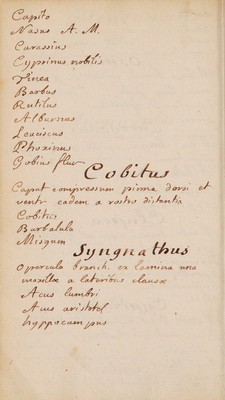 Capito
Nasus A. M.
Carassius
Cyprinus nobilis
Tinca
Barbus
Rutilus
Alburnus
Leuciscus
Phoxinus
Gobius fluv
Cobitus
Caput compressum pinna dorsi et
ventr eadem a rostro distantia
Cobitis
Barbatula
Misgum
Syngnathus
opercula branch. ex lamina una
maxillæ a lateribus clausæ
Acus lumbri
Acus aristotel
hyppocampus